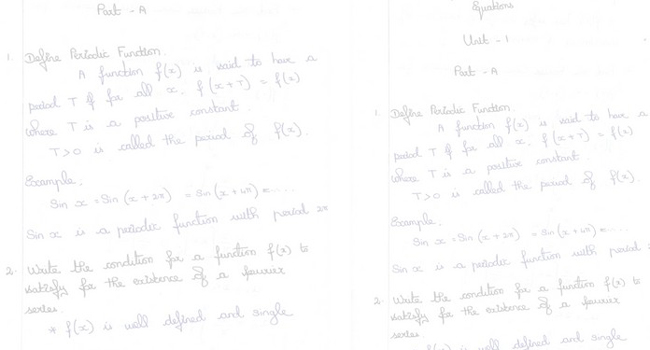 Part - A
1. Define Periodic Function.
A function f(x) is said to have a
period T if for all x, f(x+T) = f(x)
where T is a positive constant.
T>0 is called the period of f(x).
Example:
Sin x = Sin (x + 2π) = Sin (x + 4π) = ....
Sin x is a periodic function with period 2π
2. Write the condition for a function f(x) to
satisfy for the existence of a fourier
series.
* f(x) is well defined and single
Equations
Unit - 1
Part - A
1. Define Periodic Function.
A function f(x) is said to have a
period T if for all x, f(x+T) = f(x)
where T is a positive constant.
T>0 is called the period of f(x).
Example.
Sin x = Sin (x + 2π) = Sin (x + 4π) = ....
Sin x is a periodic function with period
2. Write the condition for a function f(x) to
satisfy for the existence of a fourier
series.
f(x) is well defined and single